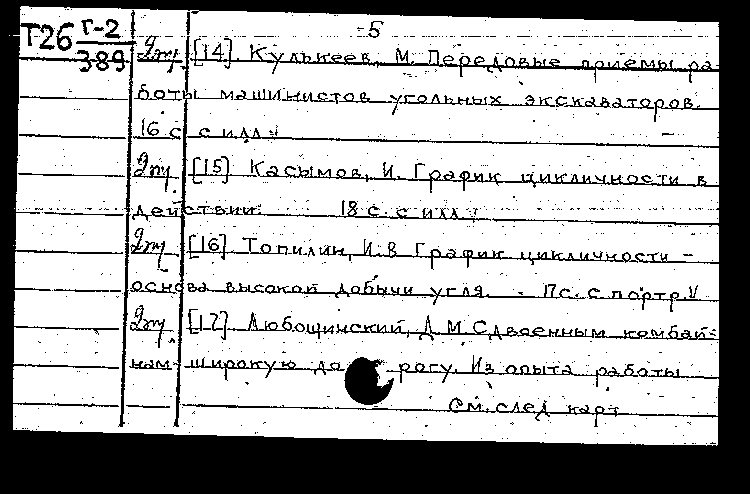 -5
Т26 Г-2
389
2эт. [14] Кулькеев, М. Передовые приемы ра-
боты машинистов угольных экскаваторов.
16 с с илл
2эт. [15] Касымов, И. График цикличности в
действии. 18 с. с илл
2эт. [16] Топилин, И.В График цикличности -
основа высокой добычи угля. - 17 с. с портр.
2эт. [17] Любощинский, Д М Сдвоенным комбай-
нам широкую до рогу. Из опыта работы
См. след карт